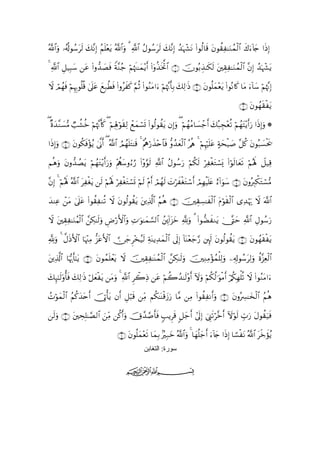 إِذَا جَاءَكَ الْمُنَافِقُونَ قَالُوا نَشْهَدُ إِنَّكَ لَرَسُولُ اللَّهِ ۗ وَاللَّهُ يَعْلَمُ إِنَّكَ لَرَسُولُهُ وَاللَّهُ
يَشْهَدُ إِنَّ الْمُنَافِقِينَ لَكَاذِبُونَ ۝ اتَّخَذُوا أَيْمَانَهُمْ جُنَّةً فَصَدُّوا عَن سَبِيلِ اللَّهِ ۚ
إِنَّهُمْ سَاءَ مَا كَانُوا يَعْمَلُونَ ۝ ذَٰلِكَ بِأَنَّهُمْ آمَنُوا ثُمَّ كَفَرُوا فَطُبِعَ عَلَىٰ قُلُوبِهِمْ فَهُمْ لَا
يَفْقَهُونَ ۝
۞ وَإِذَا رَأَيْتَهُمْ تُعْجِبُكَ أَجْسَامُهُمْ ۖ وَإِن يَقُولُوا تَسْمَعْ لِقَوْلِهِمْ ۖ كَأَنَّهُمْ خُشُبٌ مُّسَنَّدَةٌ ۖ
يَحْسَبُونَ كُلَّ صَيْحَةٍ عَلَيْهِمْ ۚ هُمُ الْعَدُوُّ فَاحْذَرْهُمْ ۚ قَاتَلَهُمُ اللَّهُ ۖ أَنَّىٰ يُؤْفَكُونَ ۝ وَإِذَا
قِيلَ لَهُمْ تَعَالَوْا يَسْتَغْفِرْ لَكُمْ رَسُولُ اللَّهِ لَوَّوْا رُءُوسَهُمْ وَرَأَيْتَهُمْ يَصُدُّونَ وَهُم
مُّسْتَكْبِرُونَ ۝ سَوَاءٌ عَلَيْهِمْ أَسْتَغْفَرْتَ لَهُمْ أَمْ لَمْ تَسْتَغْفِرْ لَهُمْ لَن يَغْفِرَ اللَّهُ لَهُمْ ۚ إِنَّ
اللَّهَ لَا يَهْدِي الْقَوْمَ الْفَاسِقِينَ ۝ هُمُ الَّذِينَ يَقُولُونَ لَا تُنفِقُوا عَلَىٰ مَنْ عِندَ
رَسُولِ اللَّهِ حَتَّىٰ يَنفَضُّوا ۗ وَلِلَّهِ خَزَائِنُ السَّمَاوَاتِ وَالْأَرْضِ وَلَٰكِنَّ الْمُنَافِقِينَ لَا
يَفْقَهُونَ ۝ يَقُولُونَ لَئِن رَّجَعْنَا إِلَى الْمَدِينَةِ لَيُخْرِجَنَّ الْأَعَزُّ مِنْهَا الْأَذَلَّ ۚ وَلِلَّهِ
الْعِزَّةُ وَلِرَسُولِهِ وَلِلْمُؤْمِنِينَ وَلَٰكِنَّ الْمُنَافِقِينَ لَا يَعْلَمُونَ ۝ يَا أَيُّهَا الَّذِينَ
آمَنُوا لَا تُلْهِكُمْ أَمْوَالُكُمْ وَلَا أَوْلَادُكُمْ عَن ذِكْرِ اللَّهِ ۚ وَمَن يَفْعَلْ ذَٰلِكَ فَأُولَٰئِكَ
هُمُ الْخَاسِرُونَ ۝ وَأَنفِقُوا مِن مَّا رَزَقْنَاكُم مِّن قَبْلِ أَن يَأْتِيَ أَحَدَكُمُ الْمَوْتُ
فَيَقُولَ رَبِّ لَوْلَا أَخَّرْتَنِي إِلَىٰ أَجَلٍ قَرِيبٍ فَأَصَّدَّقَ وَأَكُن مِّنَ الصَّالِحِينَ ۝ وَلَن
يُؤَخِّرَ اللَّهُ نَفْسًا إِذَا جَاءَ أَجَلُهَا ۚ وَاللَّهُ خَبِيرٌ بِمَا تَعْمَلُونَ ۝
سورة: التغابن
بِسْمِ اللَّهِ الرَّحْمَٰنِ الرَّحِيمِ